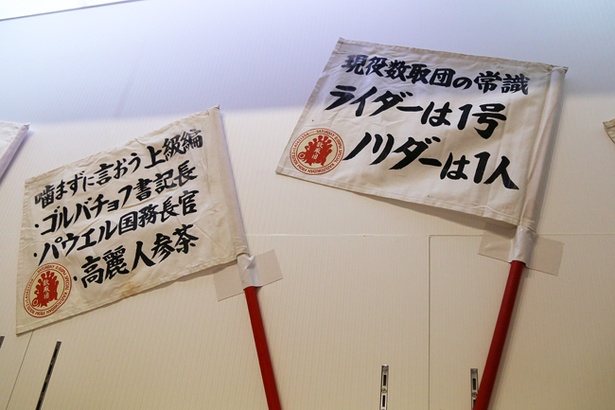 噛まずに言おう上級編
・ゴルバチョフ書記長
・パウエル国務長官
・高麗人参茶
数取団
現役数取団の常識
ライダーは1号
ノリダーは1人
数取団